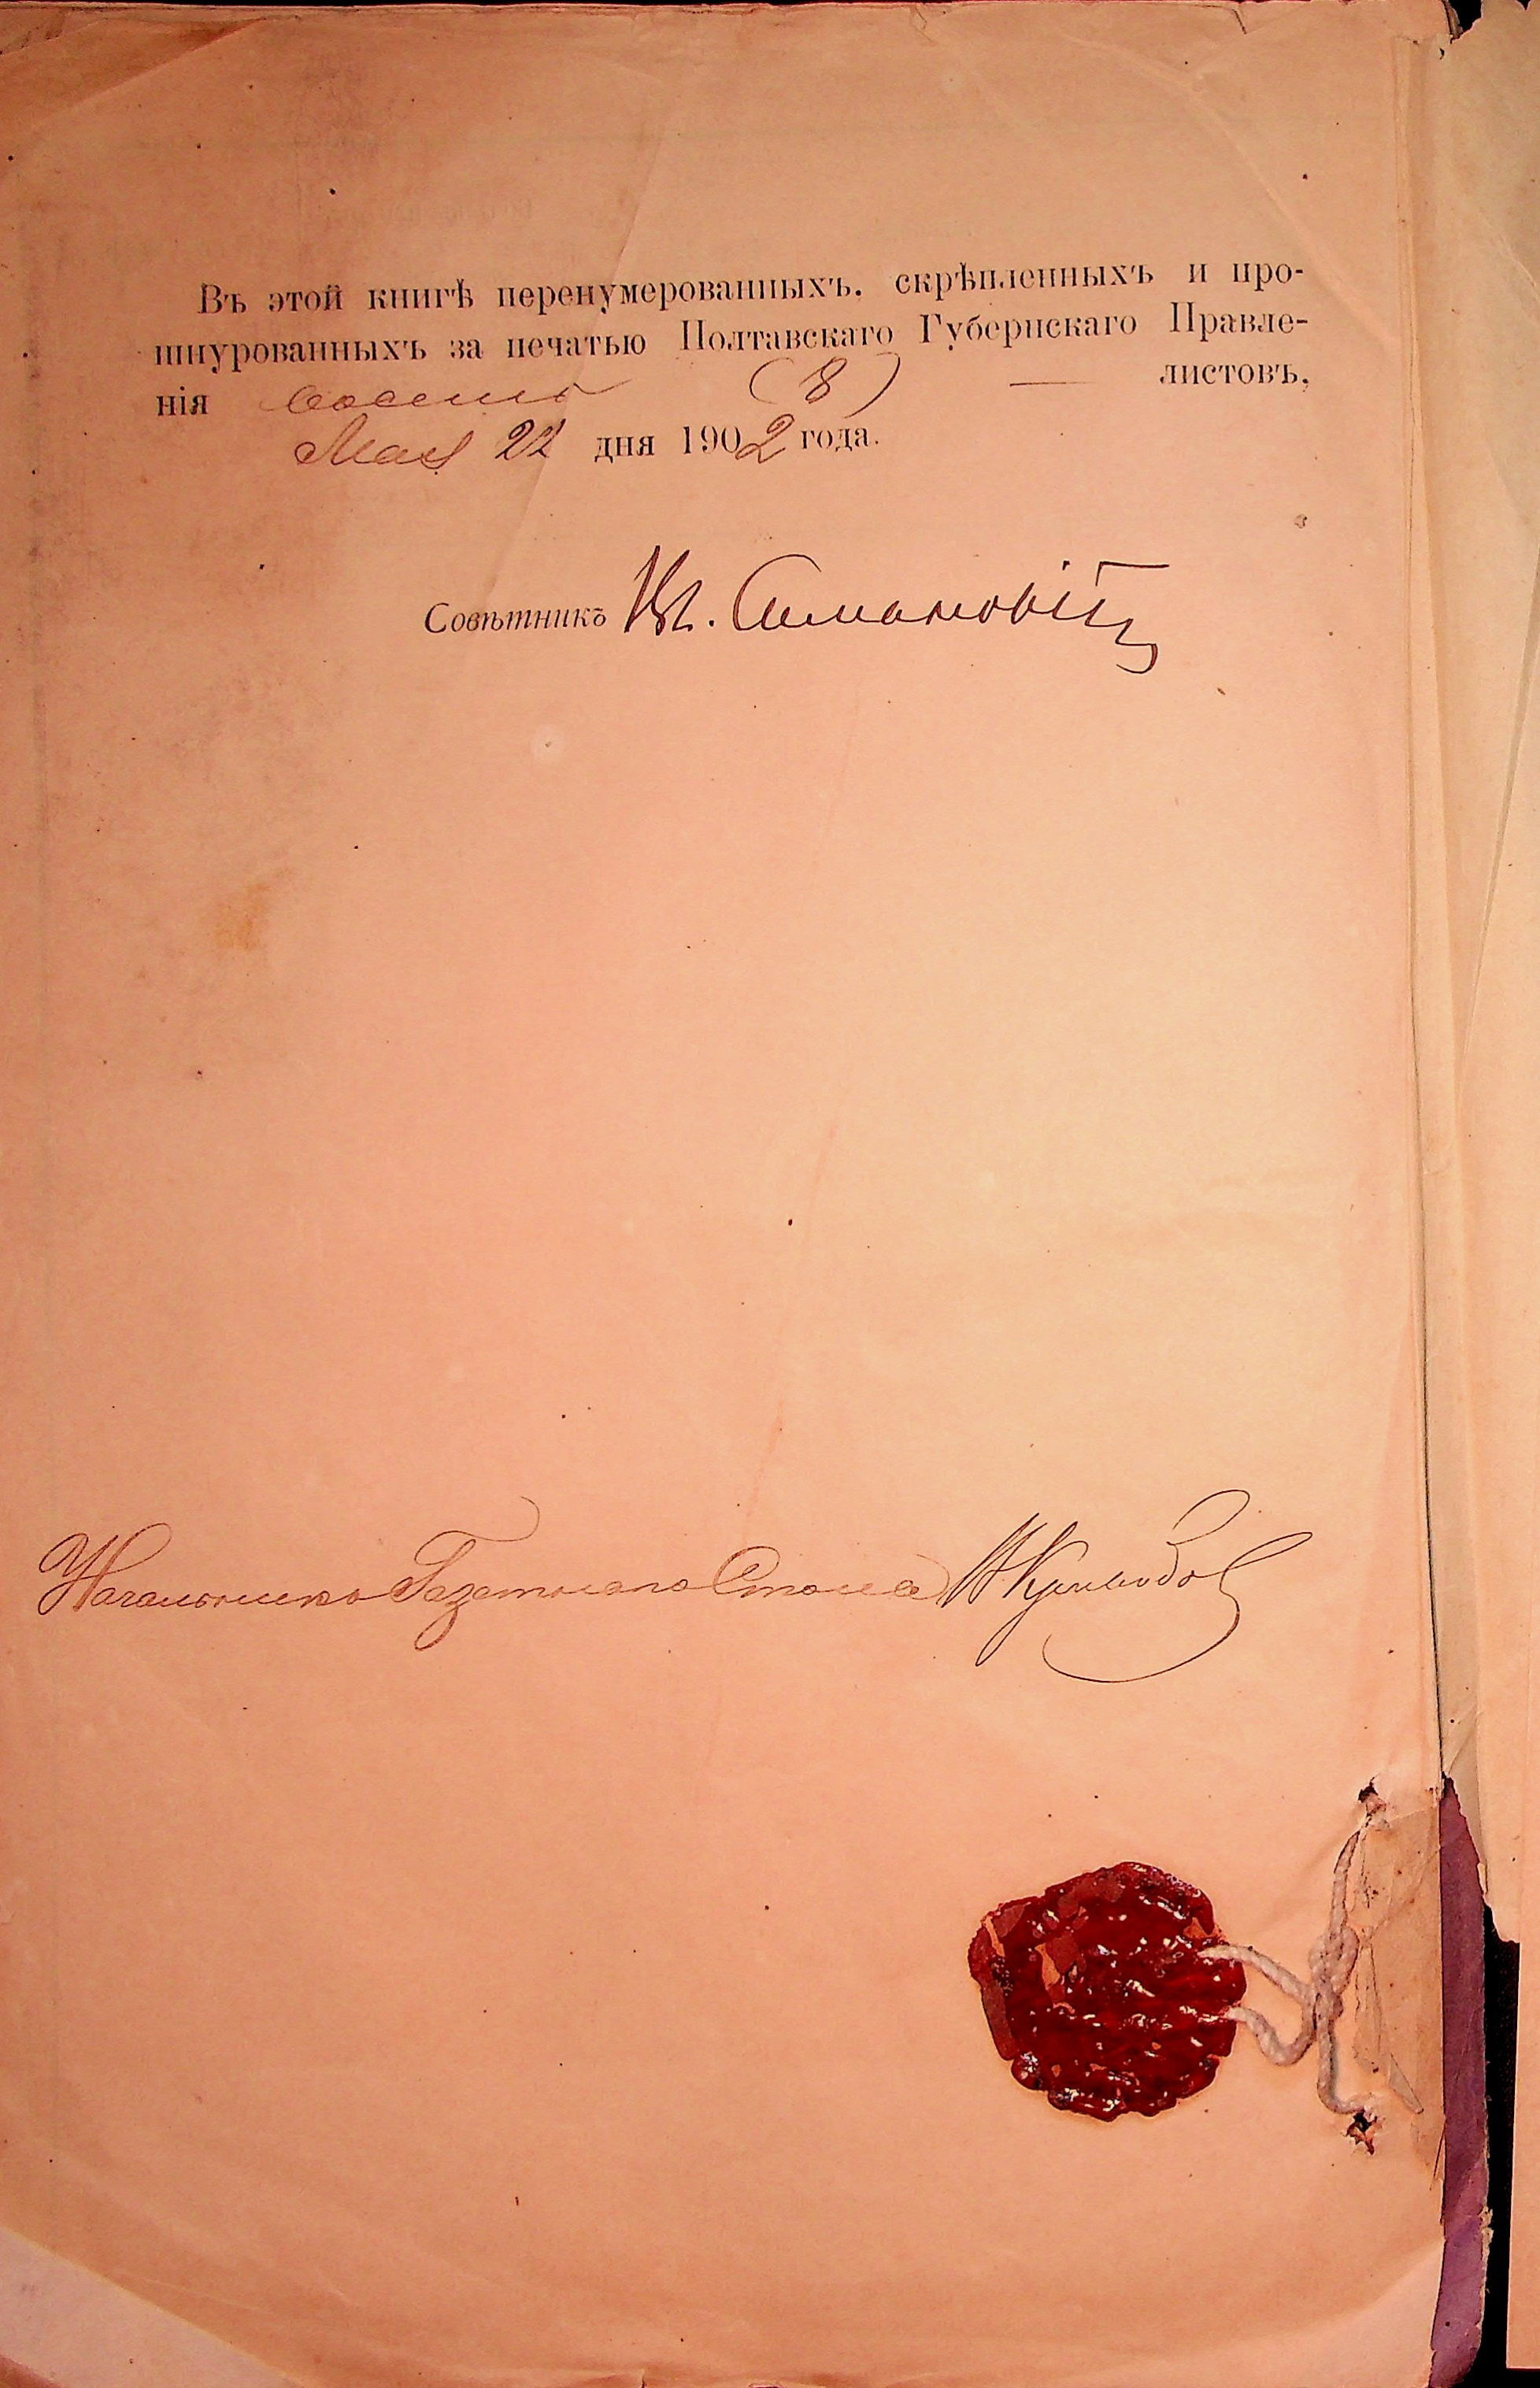 Въ этой книгѣ перенумерованныхъ, скрѣпленныхъ и про-
шнурованныхъ за печатью Полтавскаго Губернскаго Правле-
нія восемь (8) — листовъ,
Мая 22 дня 1902 года.
Совѣтникъ
Начальникъ Газетнаго Стола